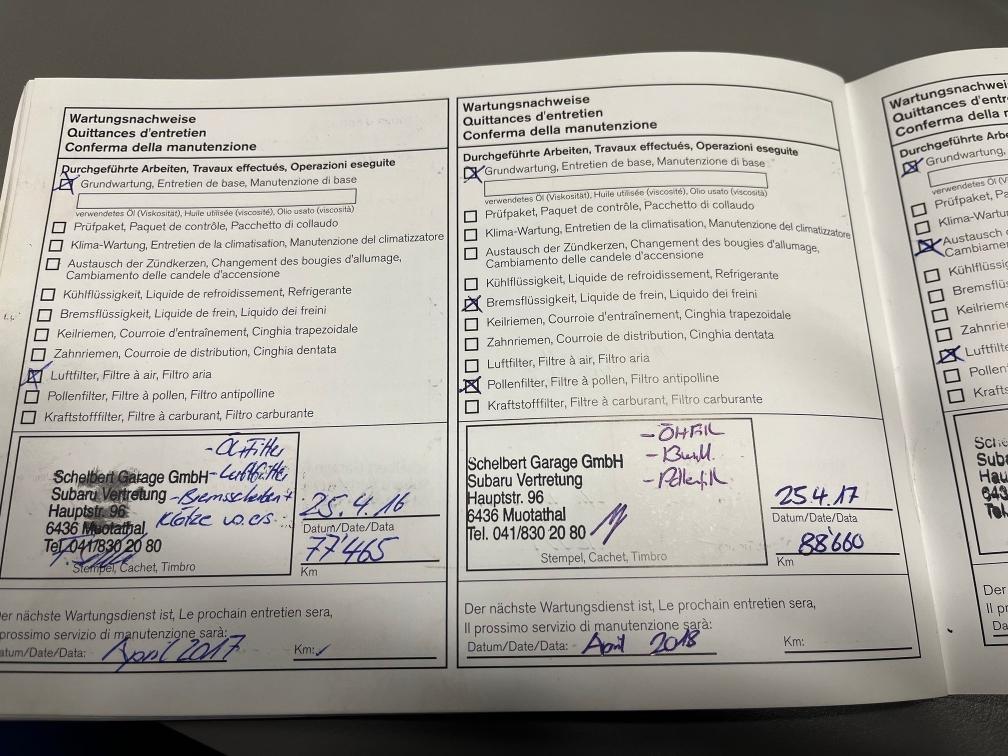 Wartungsnachweise
Quittances d'entretien
Conferma della manutenzione
Durchgeführte Arbeiten, Travaux effectués, Operazioni eseguite
Grundwartung, Entretien de base, Manutenzione di base
verwendetes Öl (Viskosität), Huile utilisée (viscosité), Olio usato (viscosità)
Prüfpaket, Paquet de contrôle, Pacchetto di collaudo
Klima-Wartung, Entretien de la climatisation, Manutenzione del climatizzatore
Austausch der Zündkerzen, Changement des bougies d'allumage,
Cambiamento delle candele d'accensione
Kühlflüssigkeit, Liquide de refroidissement, Refrigerante
Bremsflüssigkeit, Liquide de frein, Liquido dei freini
Keilriemen, Courroie d'entraînement, Cinghia trapezoidale
Zahnriemen, Courroie de distribution, Cinghia dentata
Luftfilter, Filtre à air, Filtro aria
Pollenfilter, Filtre à pollen, Filtro antipolline
Kraftstofffilter, Filtre à carburant, Filtro carburante
- Ölfilter
Schelbert Garage GmbH - Luftfilter
Subaru Vertretung - Bremsscheiben +
Hauptstr. 96 Klötze
6436 Muotathal
Tel. 041/830 20 80
Stempel, Cachet, Timbro
25.4.16
Datum/Date/Data
77'465
Km
Der nächste Wartungsdienst ist, Le prochain entretien sera,
prossimo servizio di manutenzione sarà:
Datum/Date/Data: April 2017 Km:
Wartungsnachweise
Quittances d'entretien
Conferma della manutenzione
Durchgeführte Arbeiten, Travaux effectués, Operazioni eseguite
Grundwartung, Entretien de base, Manutenzione di base
verwendetes Öl (Viskosität), Huile utilisée (viscosité), Olio usato (viscosità)
Prüfpaket, Paquet de contrôle, Pacchetto di collaudo
Klima-Wartung, Entretien de la climatisation, Manutenzione del climatizzatore
Austausch der Zündkerzen, Changement des bougies d'allumage,
Cambiamento delle candele d'accensione
Kühlflüssigkeit, Liquide de refroidissement, Refrigerante
Bremsflüssigkeit, Liquide de frein, Liquido dei freini
Keilriemen, Courroie d'entraînement, Cinghia trapezoidale
Zahnriemen, Courroie de distribution, Cinghia dentata
Luftfilter, Filtre à air, Filtro aria
Pollenfilter, Filtre à pollen, Filtro antipolline
Kraftstofffilter, Filtre à carburant, Filtro carburante
Schelbert Garage GmbH
Subaru Vertretung
Hauptstr. 96
6436 Muotathal
Tel. 041/830 20 80
Stempel, Cachet, Timbro
25.4.17
Datum/Date/Data
88'660
Km
Der nächste Wartungsdienst ist, Le prochain entretien sera,
Il prossimo servizio di manutenzione sarà:
Datum/Date/Data: April 2018 Km:
Wartungsnachwei
Quittances d'entr
Conferma della n
Durchgeführte Arbe
Grundwartung,
verwendetes Öl (V
Prüfpaket, Pa
Klima-Wartu
Austausch d
Cambiamen
Kühlflüssig
Bremsflüs
Keilriemen
Zahnrieme
Luftfilte
Pollen
Krafts
Sche
Suba
Hau
Der
Il p
Da